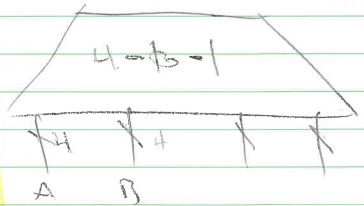 4-B-1
4 4
A B